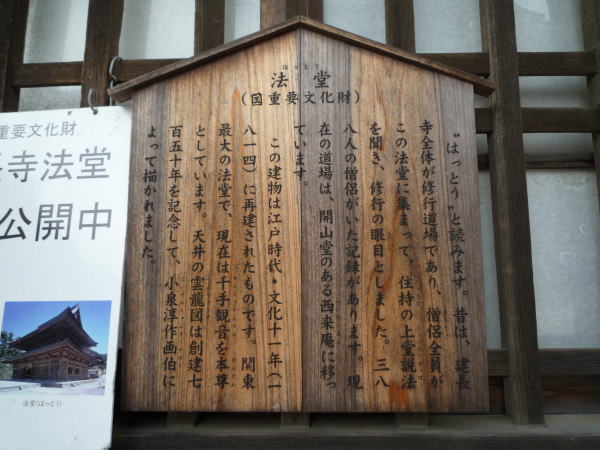 はっとう
法堂
(国重要文化財)
"はっとう"と読みます。昔は、建長
寺全体が修行道場であり、僧侶全員が
この法堂に集まって、住持の上堂説法
を聞き、修行の眼目としました。三八
八人の僧侶がいた記録があります。現
在の道場は、開山堂のある西来庵に移っ
ています。
この建物は江戸時代・文化十一年(一
八一四)に再建されたものです。関東
最大の法堂で、現在は千手観音を本尊
としています。天井の雲龍図は創建七
百五十年を記念して、小泉淳作画伯に
よって描かれました。
重要文化財
寺法堂
公開中
法堂(はっとう)